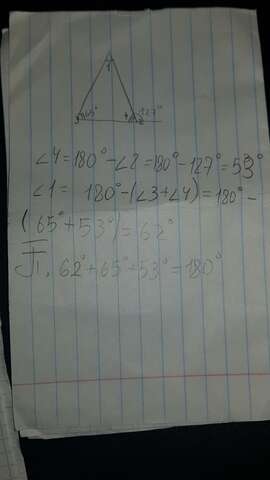 1
3 65° 4 2 127°
∠4=180°-∠2=180°-127°=53°
∠1= 180°-(∠3+∠4)=180°-
(65°+53°)=62°
П. 62°+65°+53°=180°